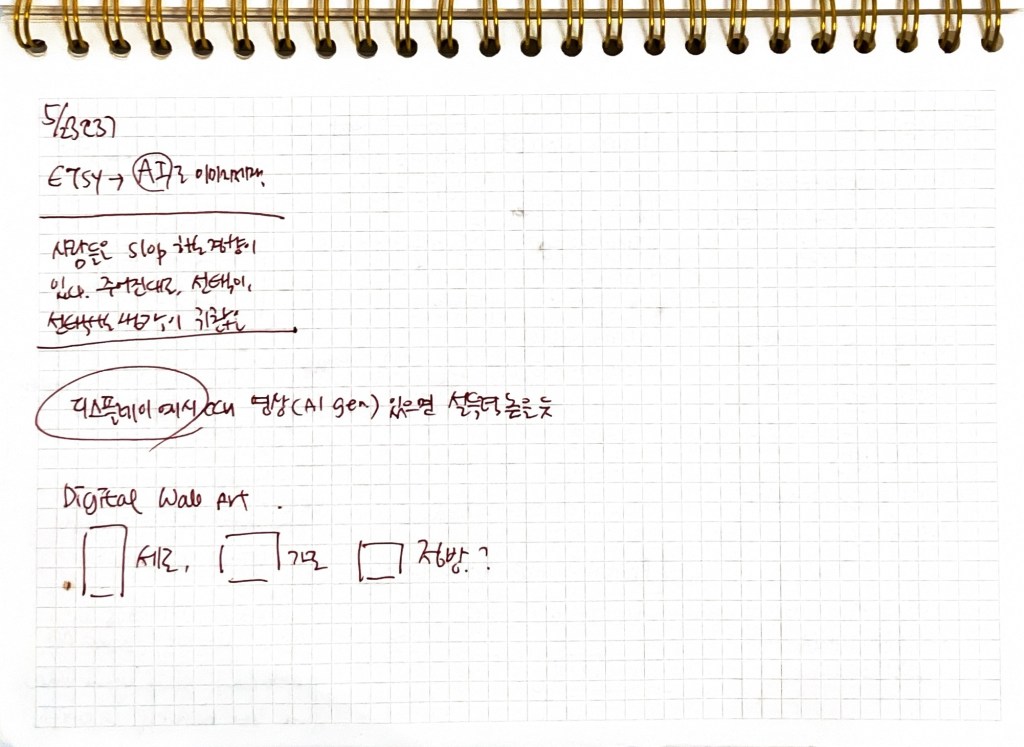 ETSY → AI로 이미지제작.
사람들은 slop 하는 경향이
있다. 주어진대로, 선택이,
선택하는 생각이 귀찮은
디스플레이 예시 영상(AI gen) 있으면 설득력 높을듯
Digital Wall Art.
세로, 가로 정방.?